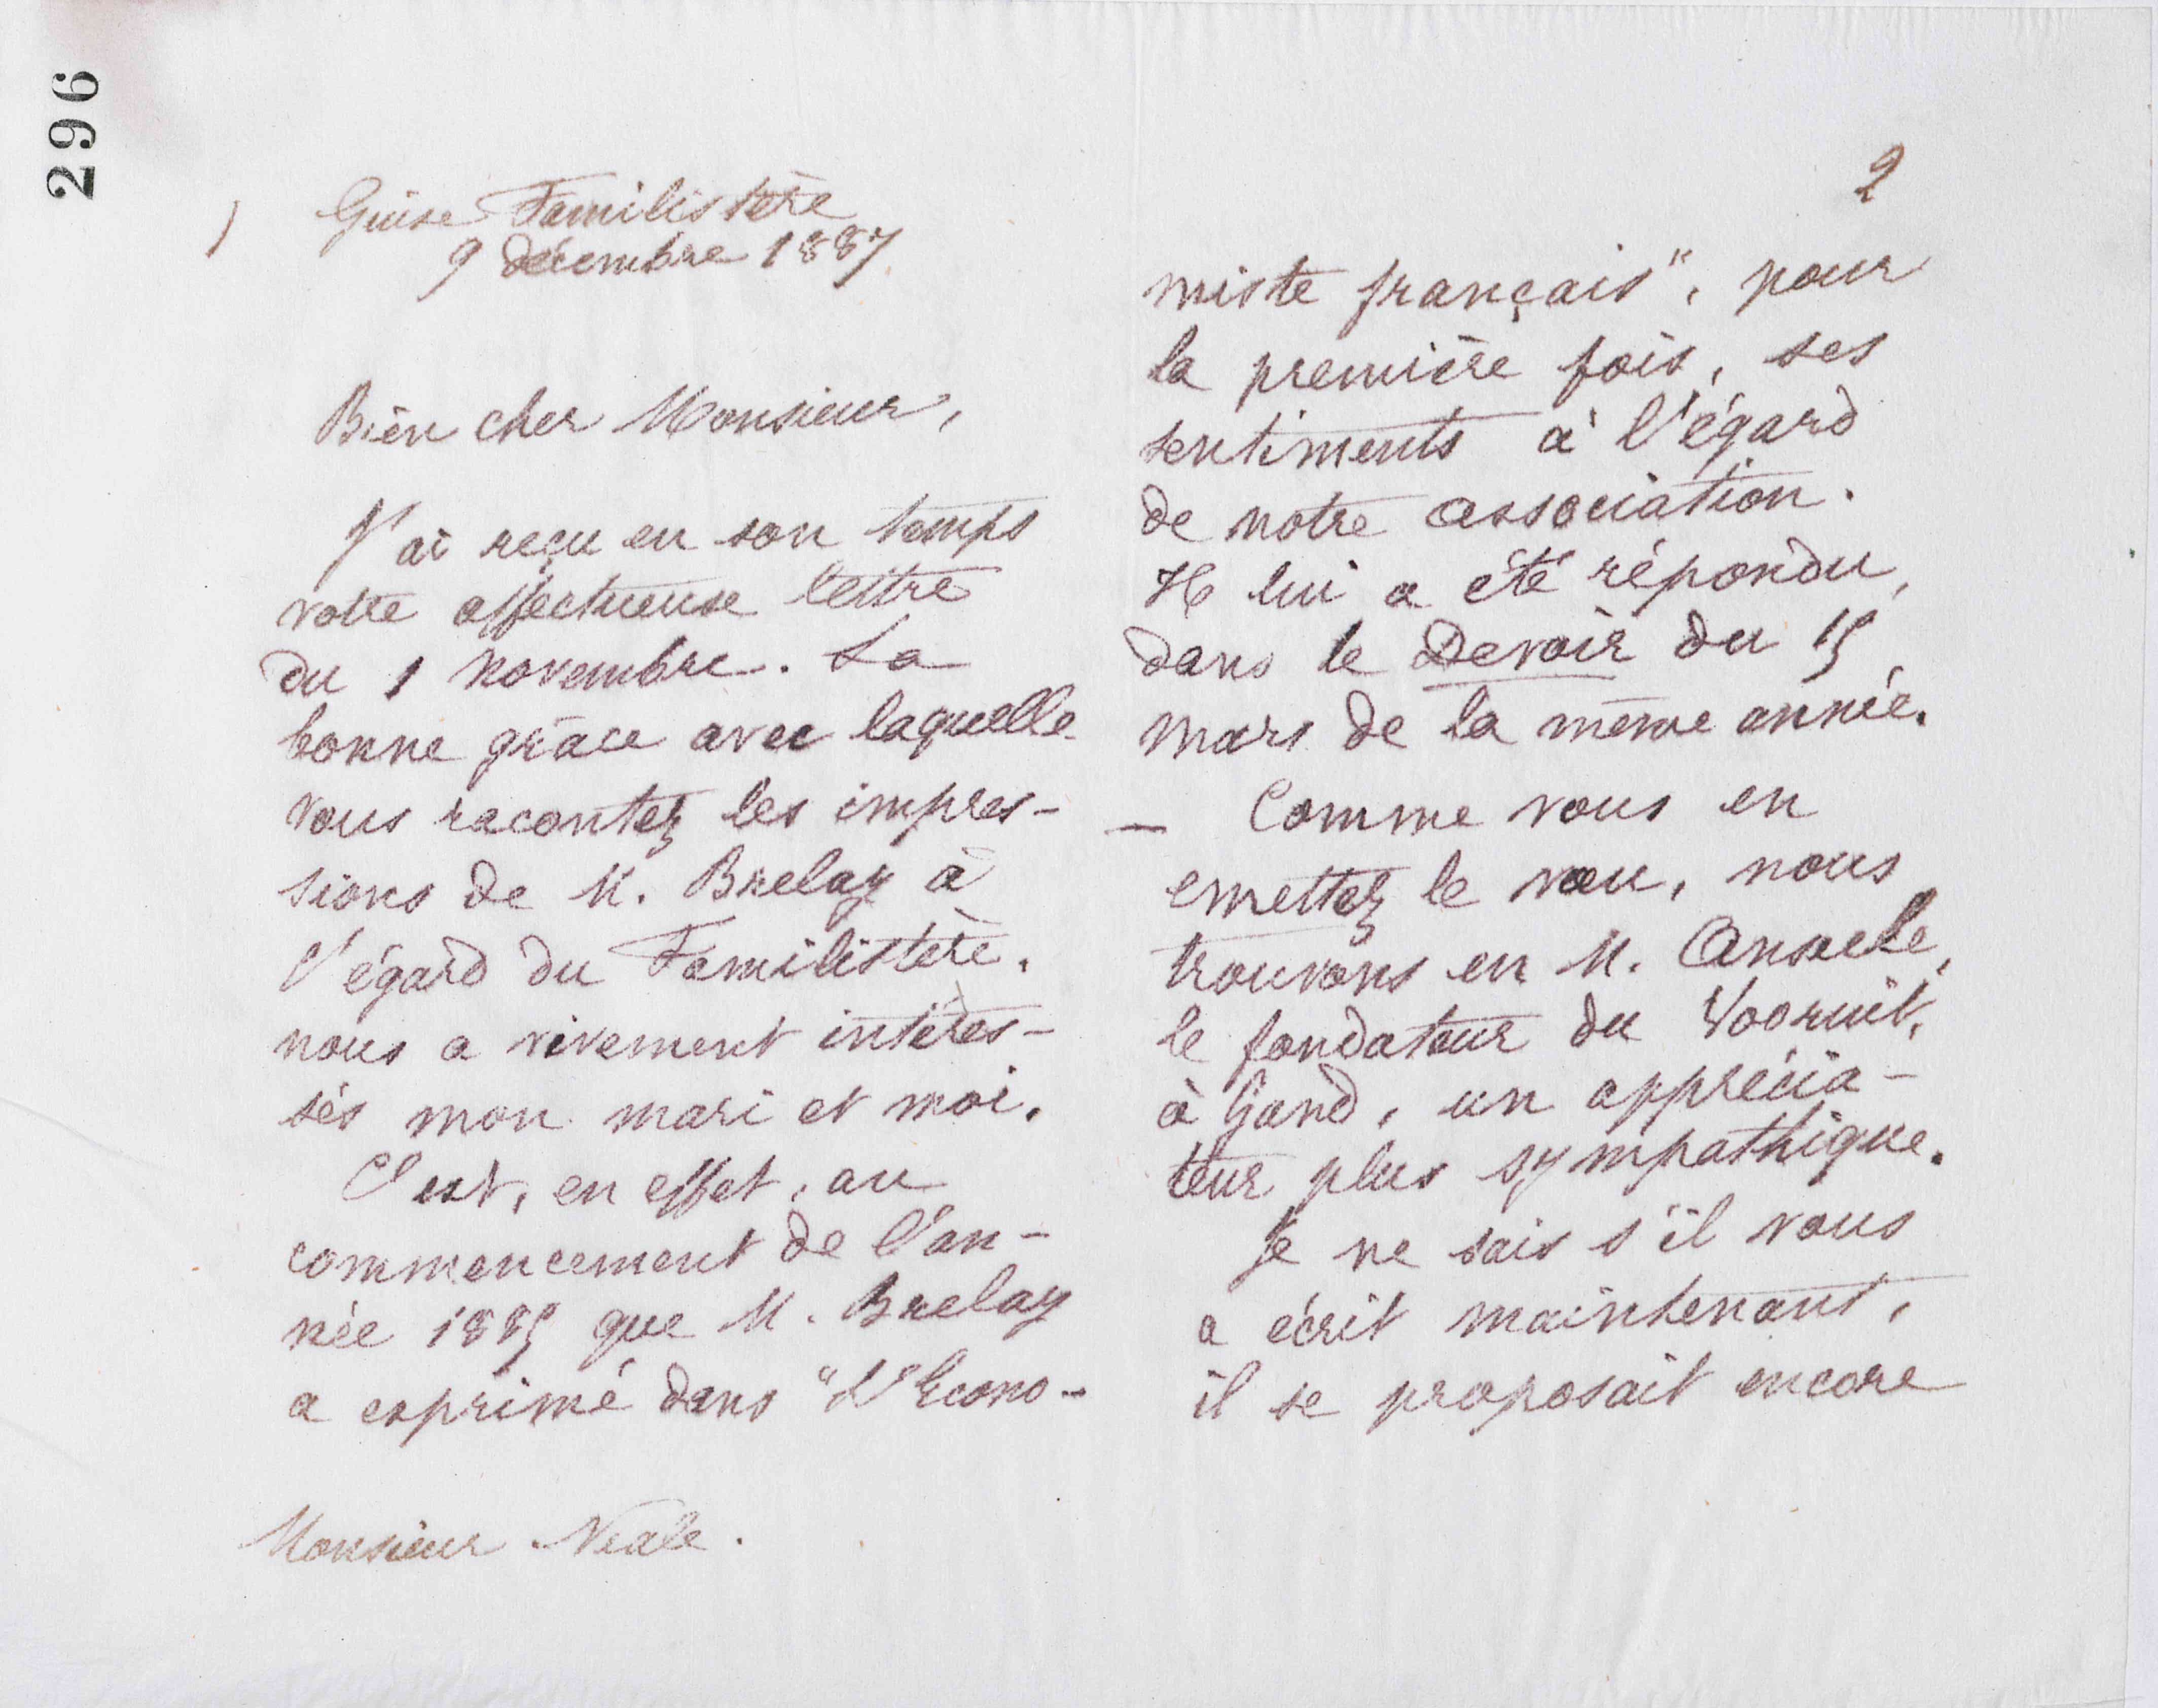 296
1
Guise Familistère
9 décembre 1887
Bien cher Monsieur,
J'ai reçu en son temps
votre affectueuse lettre
du 1 novembre. La
bonne grâce avec laquelle
vous racontez les impres-
sions de M. Brelay à
l'égard du Familistère.
nous a vivement intéres-
sés mon mari et moi.
C'est, en effet, au
commencement de l'an-
née 1885 que M. Brelay
a exprimé dans "L'Econo-
Monsieur Neale.
2
miste français", pour
la première fois, ses
sentiments à l'égard
de notre association.
Il lui a été répondu,
dans le Devoir du 15
mars de la même année.
— Comme vous en
emettez le vœu, nous
trouvons en M. Anseele,
le fondateur du Vooruit,
à Gand, un apprécia-
teur plus sympathique.
Je ne sais s'il vous
a écrit maintenant,
il se proposait encore